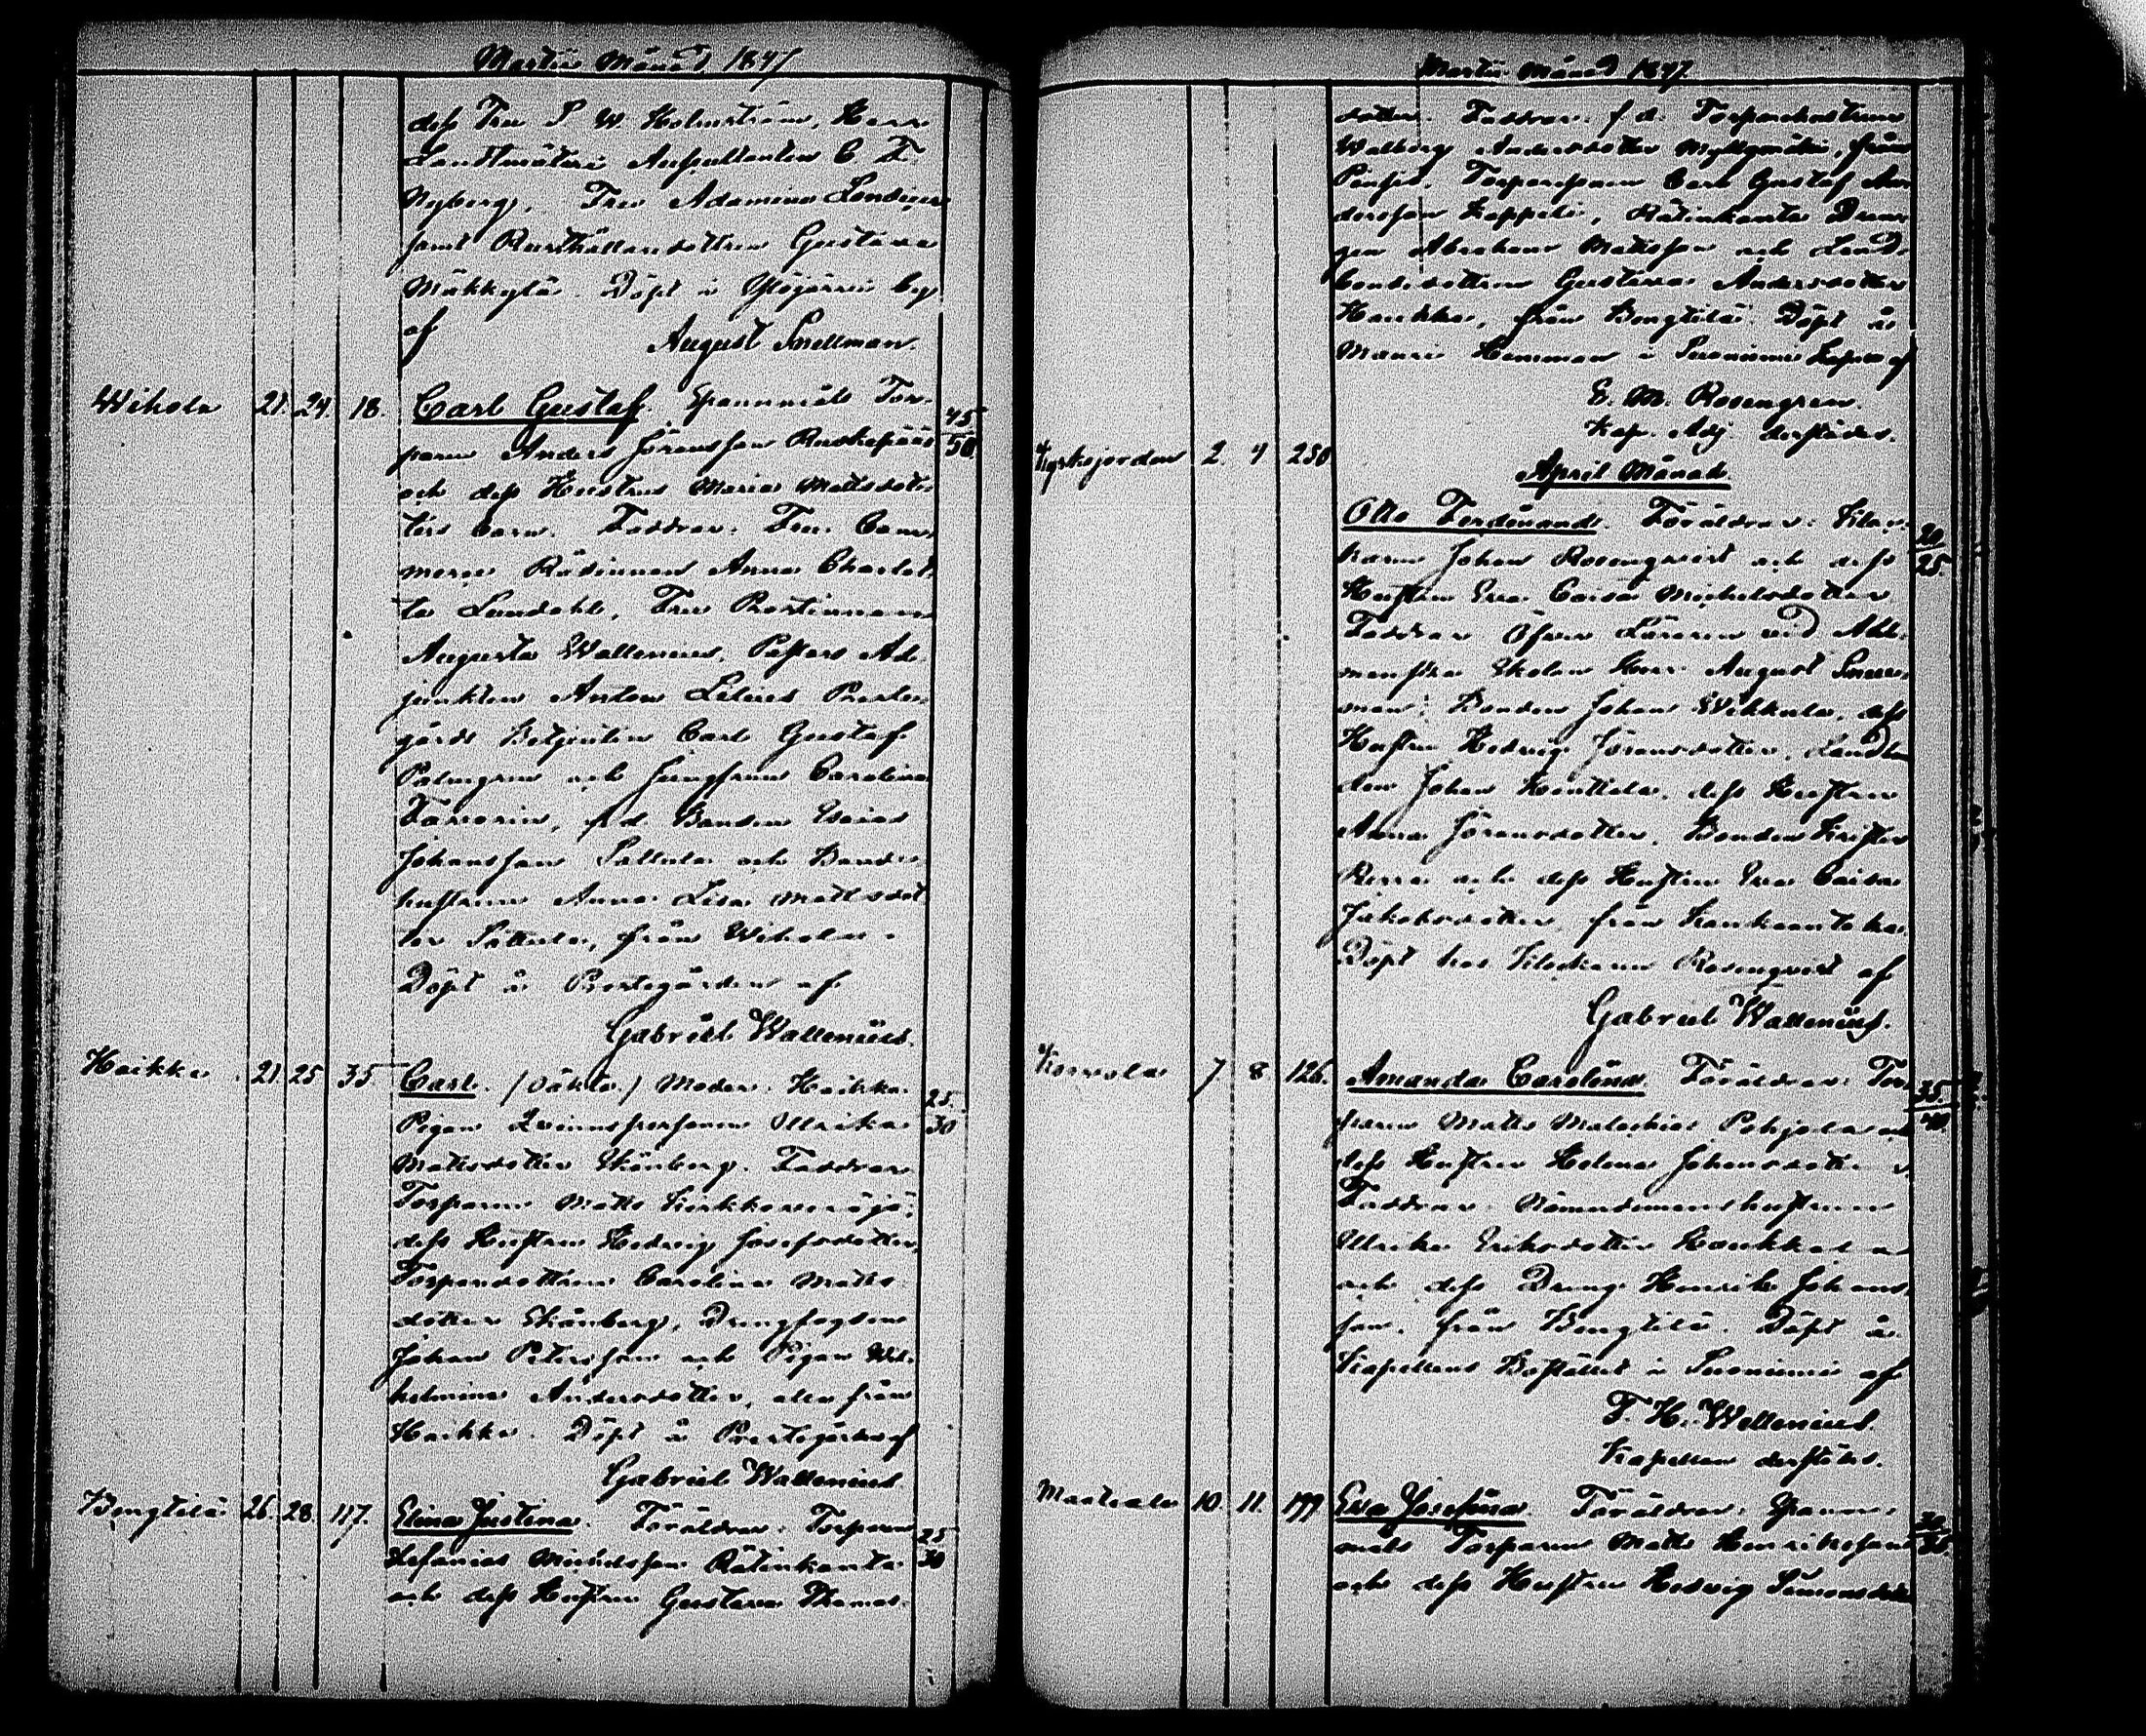 Martii Månad 1847
dess Fru S W. Holmström, Herr
Landtmäteri Auscultanten C F.
Nyberg, Fru Adamina
samt Rusthållaredottren Gustava
Mäkkylä. Döpt i Ylöjärvi by
af August Snellman.
Wihola 21. 24. 18. Carl Gustaf. Spannmåls Tor- 45
paren Anders Jöransson 50
och dess Hustrus Maria Mattsdot-
ters barn. Faddrar: Fru Com-
merce Rådinnan Anna Charlot-
ta Lundahl, Fru Prostinnan
Augusta Wallenius, Pastors Ad-
junkten Anton Lilius Preste-
gårds Betjenten Carl Gustaf
Palmgren och Jungfrun Carolina
f.d. Bonden Esaias
Johansson Sallula och Bonde-
hustrun Anna Lisa Mattsdot-
ter från Wihola.
Döpt å Prestegården af
Gabriel Wallenius.
Haikka 21. 25 35 Carl. (oäkta.) Moder: Haikka 25.
Pigan Qvinnspersonen Ullrika 30
Mattsdotter Skönberg. Faddrar:
Torparen Matts
dess Hustru Hedvig Josefsdotter,
Torparedottren Carolina Matts-
dotter Skönberg, Drengfogden
Johan Petersson och Pigan Wil-
helmina Andersdotter, alla från
Haikka. Döpt å Prestegården af
Gabriel Wallenius.
Bengtilä 26. 28. 117. Elina Justina. Föräldrar: Torparen 25
Zefanias Michelsson Rätinkanta 30
och dess Hustru Gustava Thomas-
Martii Månad 1847.
dotter. Faddrar: f.d. Torparehustrun
Walborg Andersdotter från
Torparesonen Carl Gustaf An-
dersson Kappeli, Rätinkanta Dren-
gen Abraham Mattsson och Land-
bondedottren Gustava Andersdotter
från Bengtilä. Döpt å
Mauri Hemman i Suoniemi Kapell af
E. M. Rosengren.
Kap. Adj. derstädes.
Kyrkojorden 2. 4 250 April Månad
Otto Ferdinand. Föräldrar: Kloc- 20
karen Johan Rosenqvist och dess 25.
Hustru Eva Caisa Michelsdotter
Faddrar Öfver Läraren vid Ahl-
manska Skolan Herr August Snell-
man; Bonden Johan Wikkula, dess
Hustru Hedvig Jöransdotter, Landbon-
den Johan Kauttola, dess Hustru
Anna Jöransdotter, Bonden Krister
och dess Hustru Eva Caisa
Jakobsdotter från Kankaantaka.
Döpt hos Klockaren Rosenqvist af
Gabriel Wallenius.
Korvola 7. 8. 126. Amanda Carolina. Föräldrar: Tor- 35.
paren Matts Malachias Pohjola och 40.
dess Hustru Helena Johansdotter
Faddrar Nämndemanshustrun
Ullrika Eriksdotter Haukkala
och dess Dreng Henrik Johans-
son, från Bengtilä. Döpt å
Kapellans Bostället i Suoniemi af
F. H. Wallenius.
Kapellan derstädes.
Maatiala 10. 11. 199 Eva Josefina. Föräldrar: Spann- 30
måls Torparen Matts Henriksson 35.
och dess Hustru Hedvig Simonsdotter